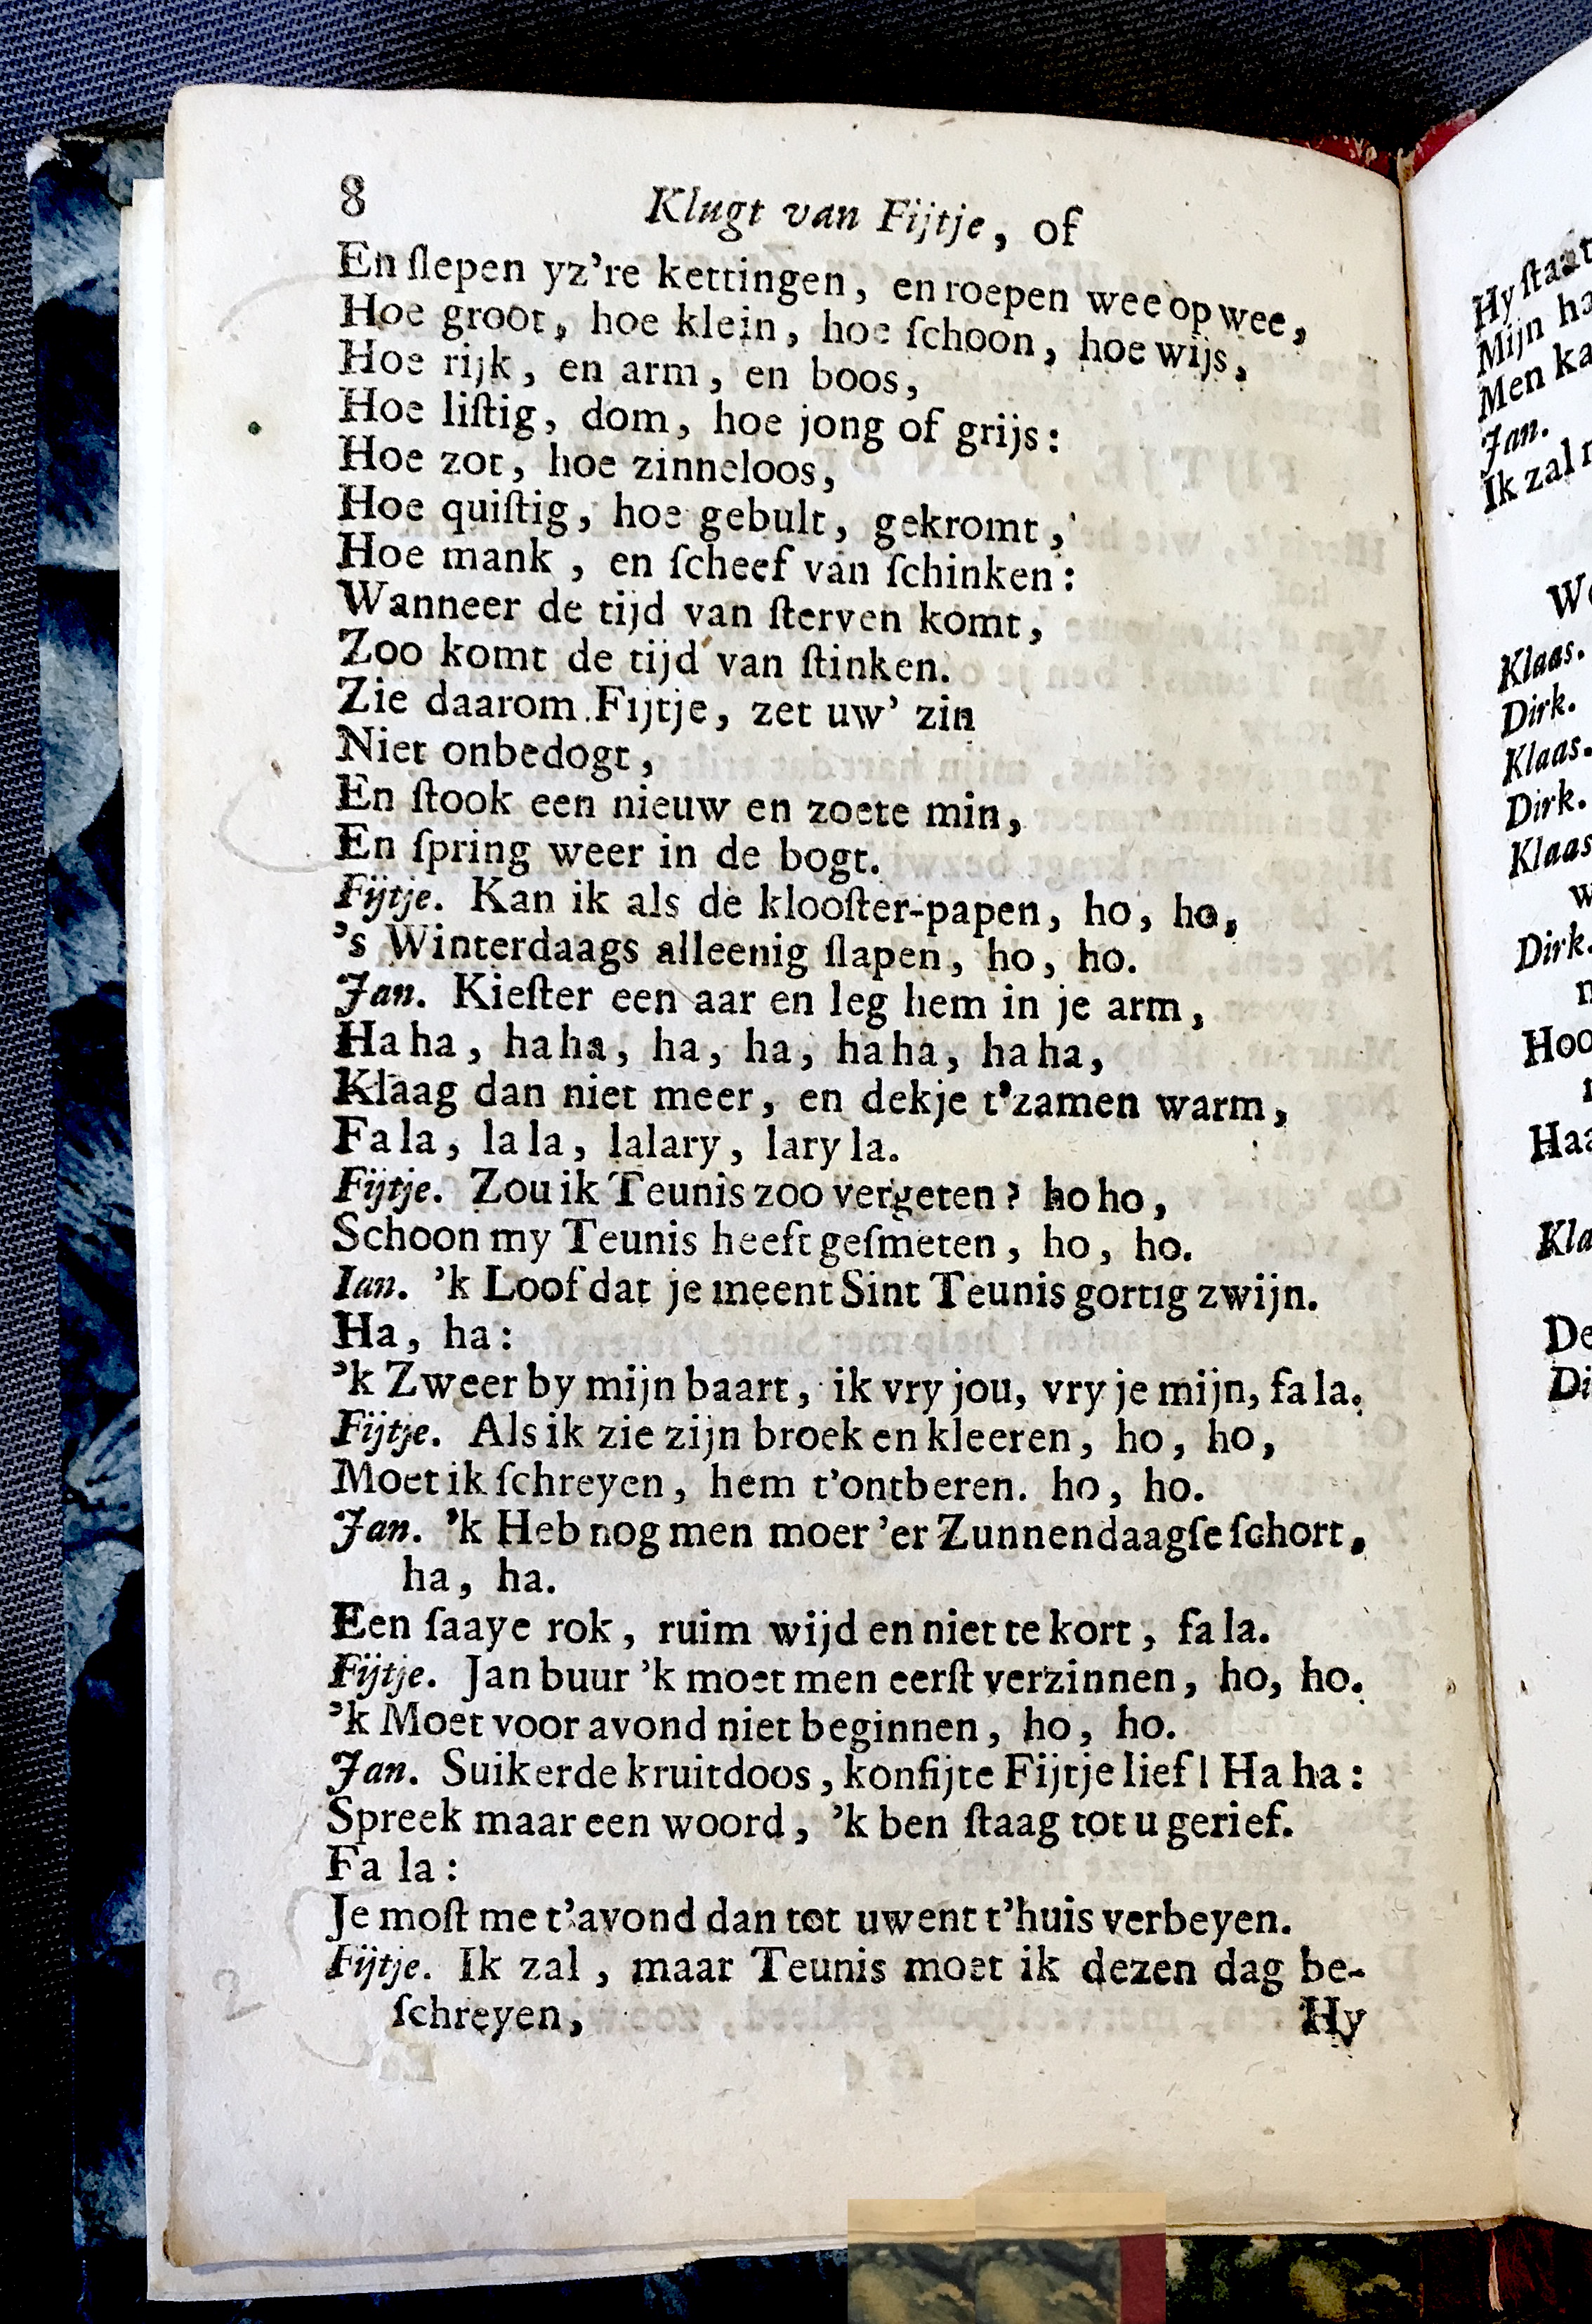 8 Klugt van Fijtje, of
En ſlepen yz’re kettingen, en roepen wee op wee,
Hoe groot, hoe klein, hoe ſchoon, hoe wijs,
Hoe rijk, en arm, en boos,
Hoe liſtig, dom, hoe jong of grijs:
Hoe zot, hoe zinneloos,
Hoe quiſtig, hoe gebult, gekromt,
Hoe mank, en ſcheef van ſchinken:
Wanneer de tijd van ſterven komt,
Zoo komt de tijd van ſtinken.
Zie daarom Fijtje, zet uw’ zin
Niet onbedogt,
En ſtook een nieuw en zoete min,
En ſpring weer in de bogt.
Fijtje. Kan ik als de klooſter-papen, ho, ho,
’s Winterdaags alleenig ſlapen, ho, ho.
Jan. Kieſter een aar en leg hem in je arm,
Ha ha, ha ha, ha, ha, ha ha, ha ha,
Klaag dan niet meer, en dekje t’zamen warm,
Fa la, la la, lalary, lary la.
Fijtje. Zou ik Teunis zoo vergeten? ho ho,
Schoon my Teunis heeft geſmeten, ho, ho.
Ian. ’k Loof dat je meent Sint Teunis gortig zwijn.
Ha, ha:
’k Zweer by mijn baart, ik vry jou, vry je mijn, fa la.
Fijtje. Als ik zie zijn broek en kleeren, ho, ho,
Moet ik ſchreyen, hem t’ontberen. ho, ho.
Jan. ’k Heb nog men moer ’er Zunnendaagſe ſchort,
ha, ha.
Een ſaaye rok, ruim wijd en niet te kort, fa la.
Fijtje. Jan buur ’k moet men eerſt verzinnen, ho, ho.
’k Moet voor avond niet beginnen, ho, ho.
Jan. Suikerde kruitdoos, konfijte Fijtje lief! Ha ha:
Spreek maar een woord, ’k ben ſtaag tot u gerief.
Fa la:
Je moſt me t’avond dan tot uwent t’huis verbeyen.
Fijtje. Ik zal, maar Teunis moet ik dezen dag be-
ſchreyen,
Hy
2
Hy ſtaat
Mijn
Men
Jan.
Ik zal
Klaas.
Dirk.
Klaas.
Dirk.
Klaas
Dirk.